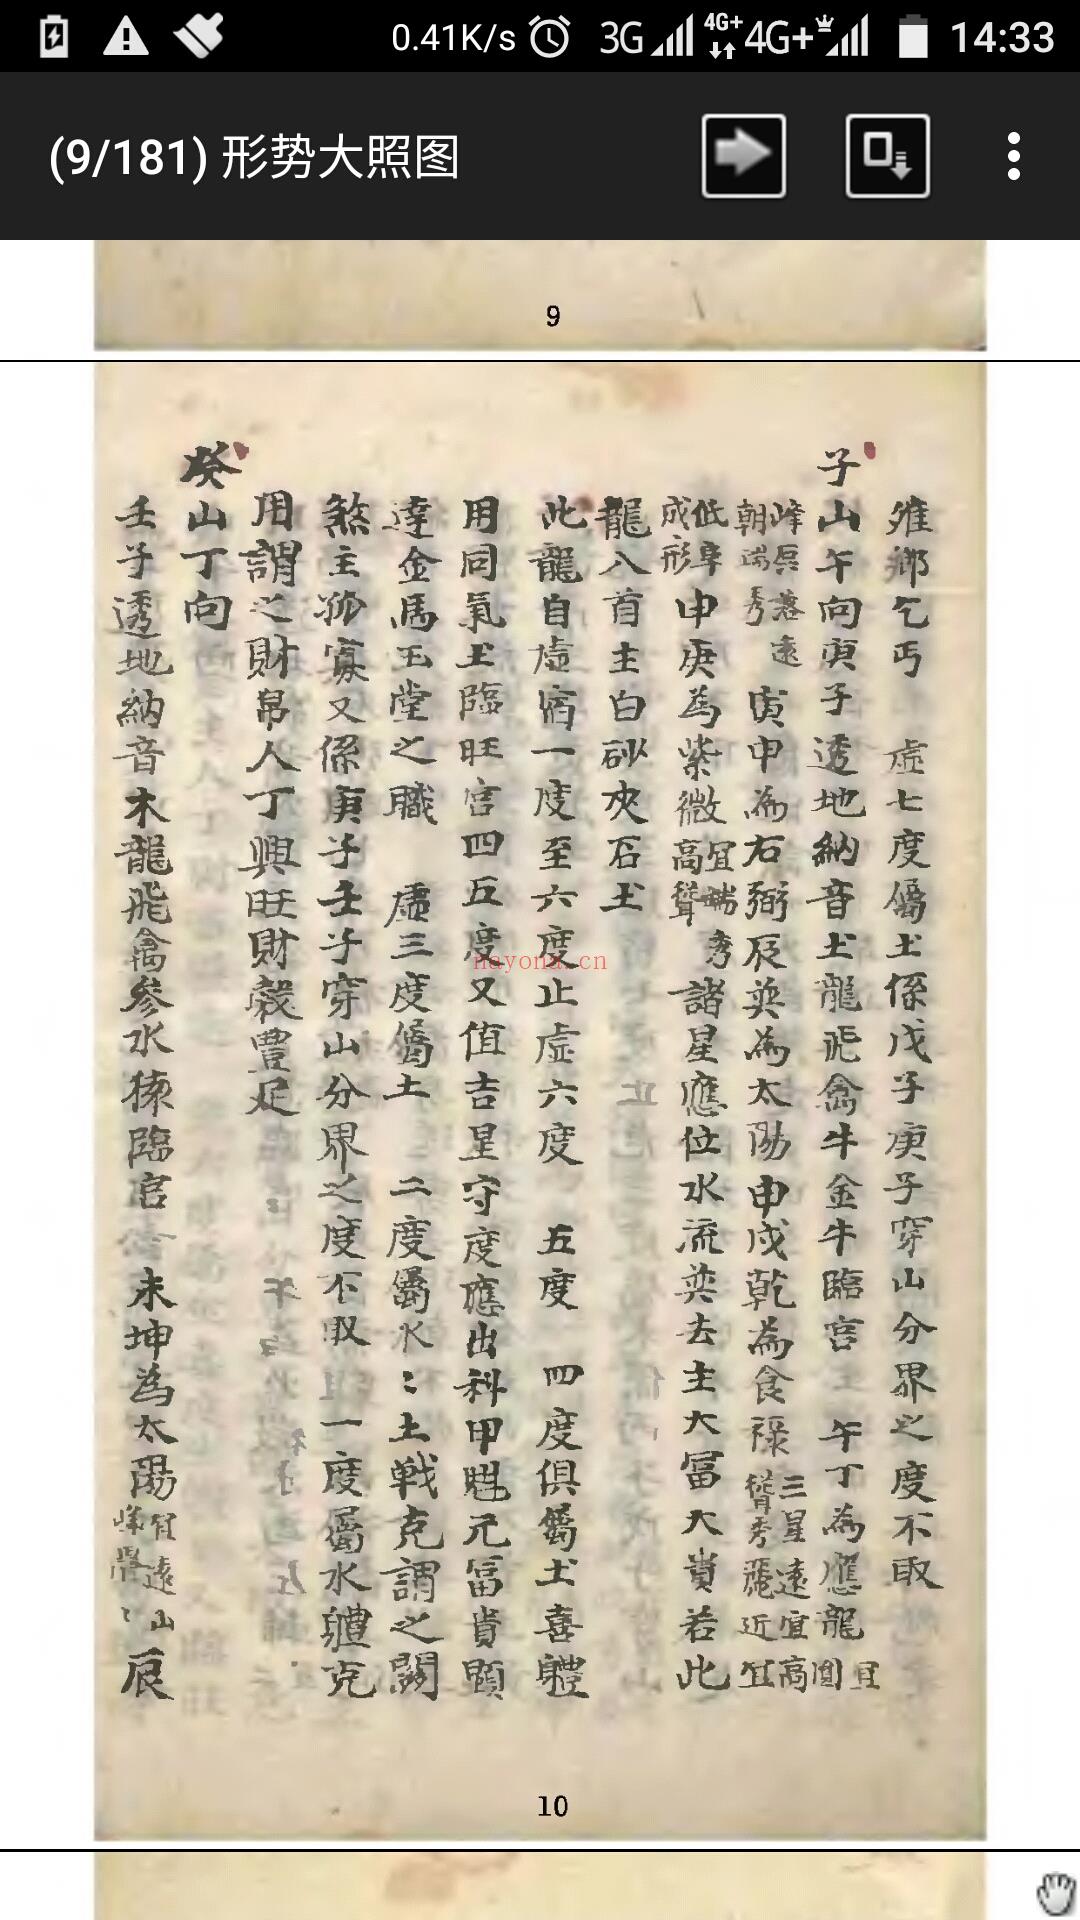 0.41K/s 3G 4G+ 4G+ 14:33
(9/181) 形势大照图
9
雖鄉乞丐 虛七度屬土係戊子庚子穿山分界之度不取
子山午向庚子透地納音土龍飛禽牛金牛臨官 午丁為應龍宜圓
峰唇落遠朝端秀 寅申為右弼辰巽為太陽申戌乾為食祿三星遠宜高聳秀麗近宜
低阜成形 申庚為紫微宜端秀高聳 諸星應位水流巽去主大富大貴若此
龍八首主白砂夾石土
此龍自虛宿一度至六度止虛六度 五度 四度俱屬土喜體
用同氣土臨旺宮四五度又值吉星守度應出科甲魁元富貴顯
達金馬玉堂之職 虛三度屬土 二度屬水：土戰克謂之關
煞主孤寡又係庚子壬子穿山分界之度不取 一度屬水體克
用謂之財帛人丁興旺財穀豐足
癸山丁向
壬子透地納音木龍飛禽參水猿臨官 未坤為太陽宜遠山峰 辰
nayona.cn
10